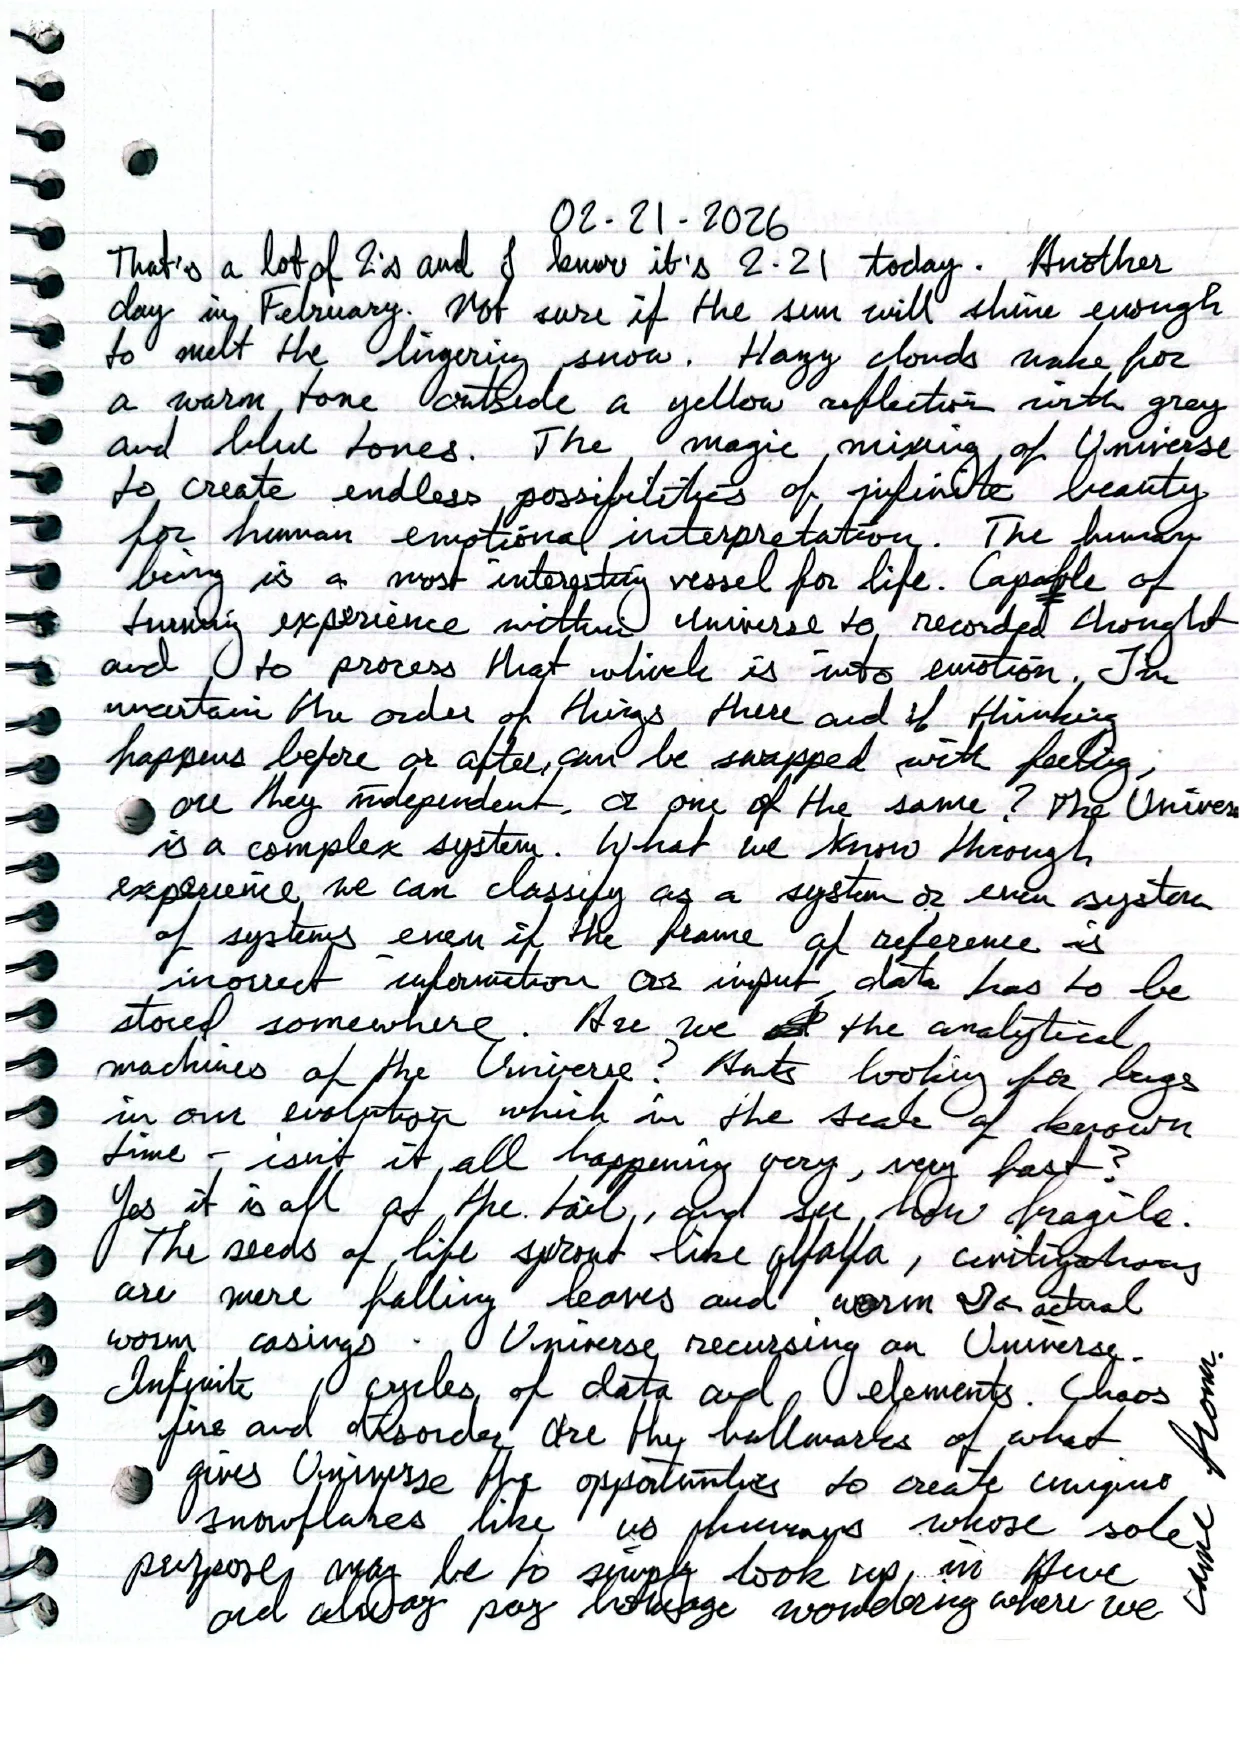 02-21-2026
That's a lot of 2's and I know it's 2-21 today. Another
day in February. Not sure if the sun will shine enough
to melt the lingering snow. Hazy clouds make for
a warm tone outside a yellow reflection with grey
and blue tones. The magic mixing of Universe
to create endless possibilities of infinite beauty
for human emotional interpretation. The human
being is a most interesting vessel for life. Capable of
turning experience within Universe to recorded thought
and to process that which is into emotion. I'm
uncertain the order of things there and if thinking
happens before or after, can be swapped with feeling,
are they independent, or one of the same? The Universe
is a complex system. What we know through
experience we can classify as a system or even system
of systems even if the frame of reference is
incorrect information or input, data has to be
stored somewhere. Are we the analytical
machines of the Universe? Ants looking for bugs
in our evolution which in the scale of known
time - isn't it all happening very, very fast?
Yes it is all at the tail, and see how fragile.
The seeds of life sprout like alfalfa, civilizations
are mere falling leaves and worm actual
worm casings. Universe recursing on Universe.
Infinite cycles of data and elements. Chaos
fire and disorder are the hallmarks of what
gives Universe the opportunities to create unique
snowflakes like us humans whose sole
purpose may be to simply look up in Awe
and alway pay homage wondering where we
came from.